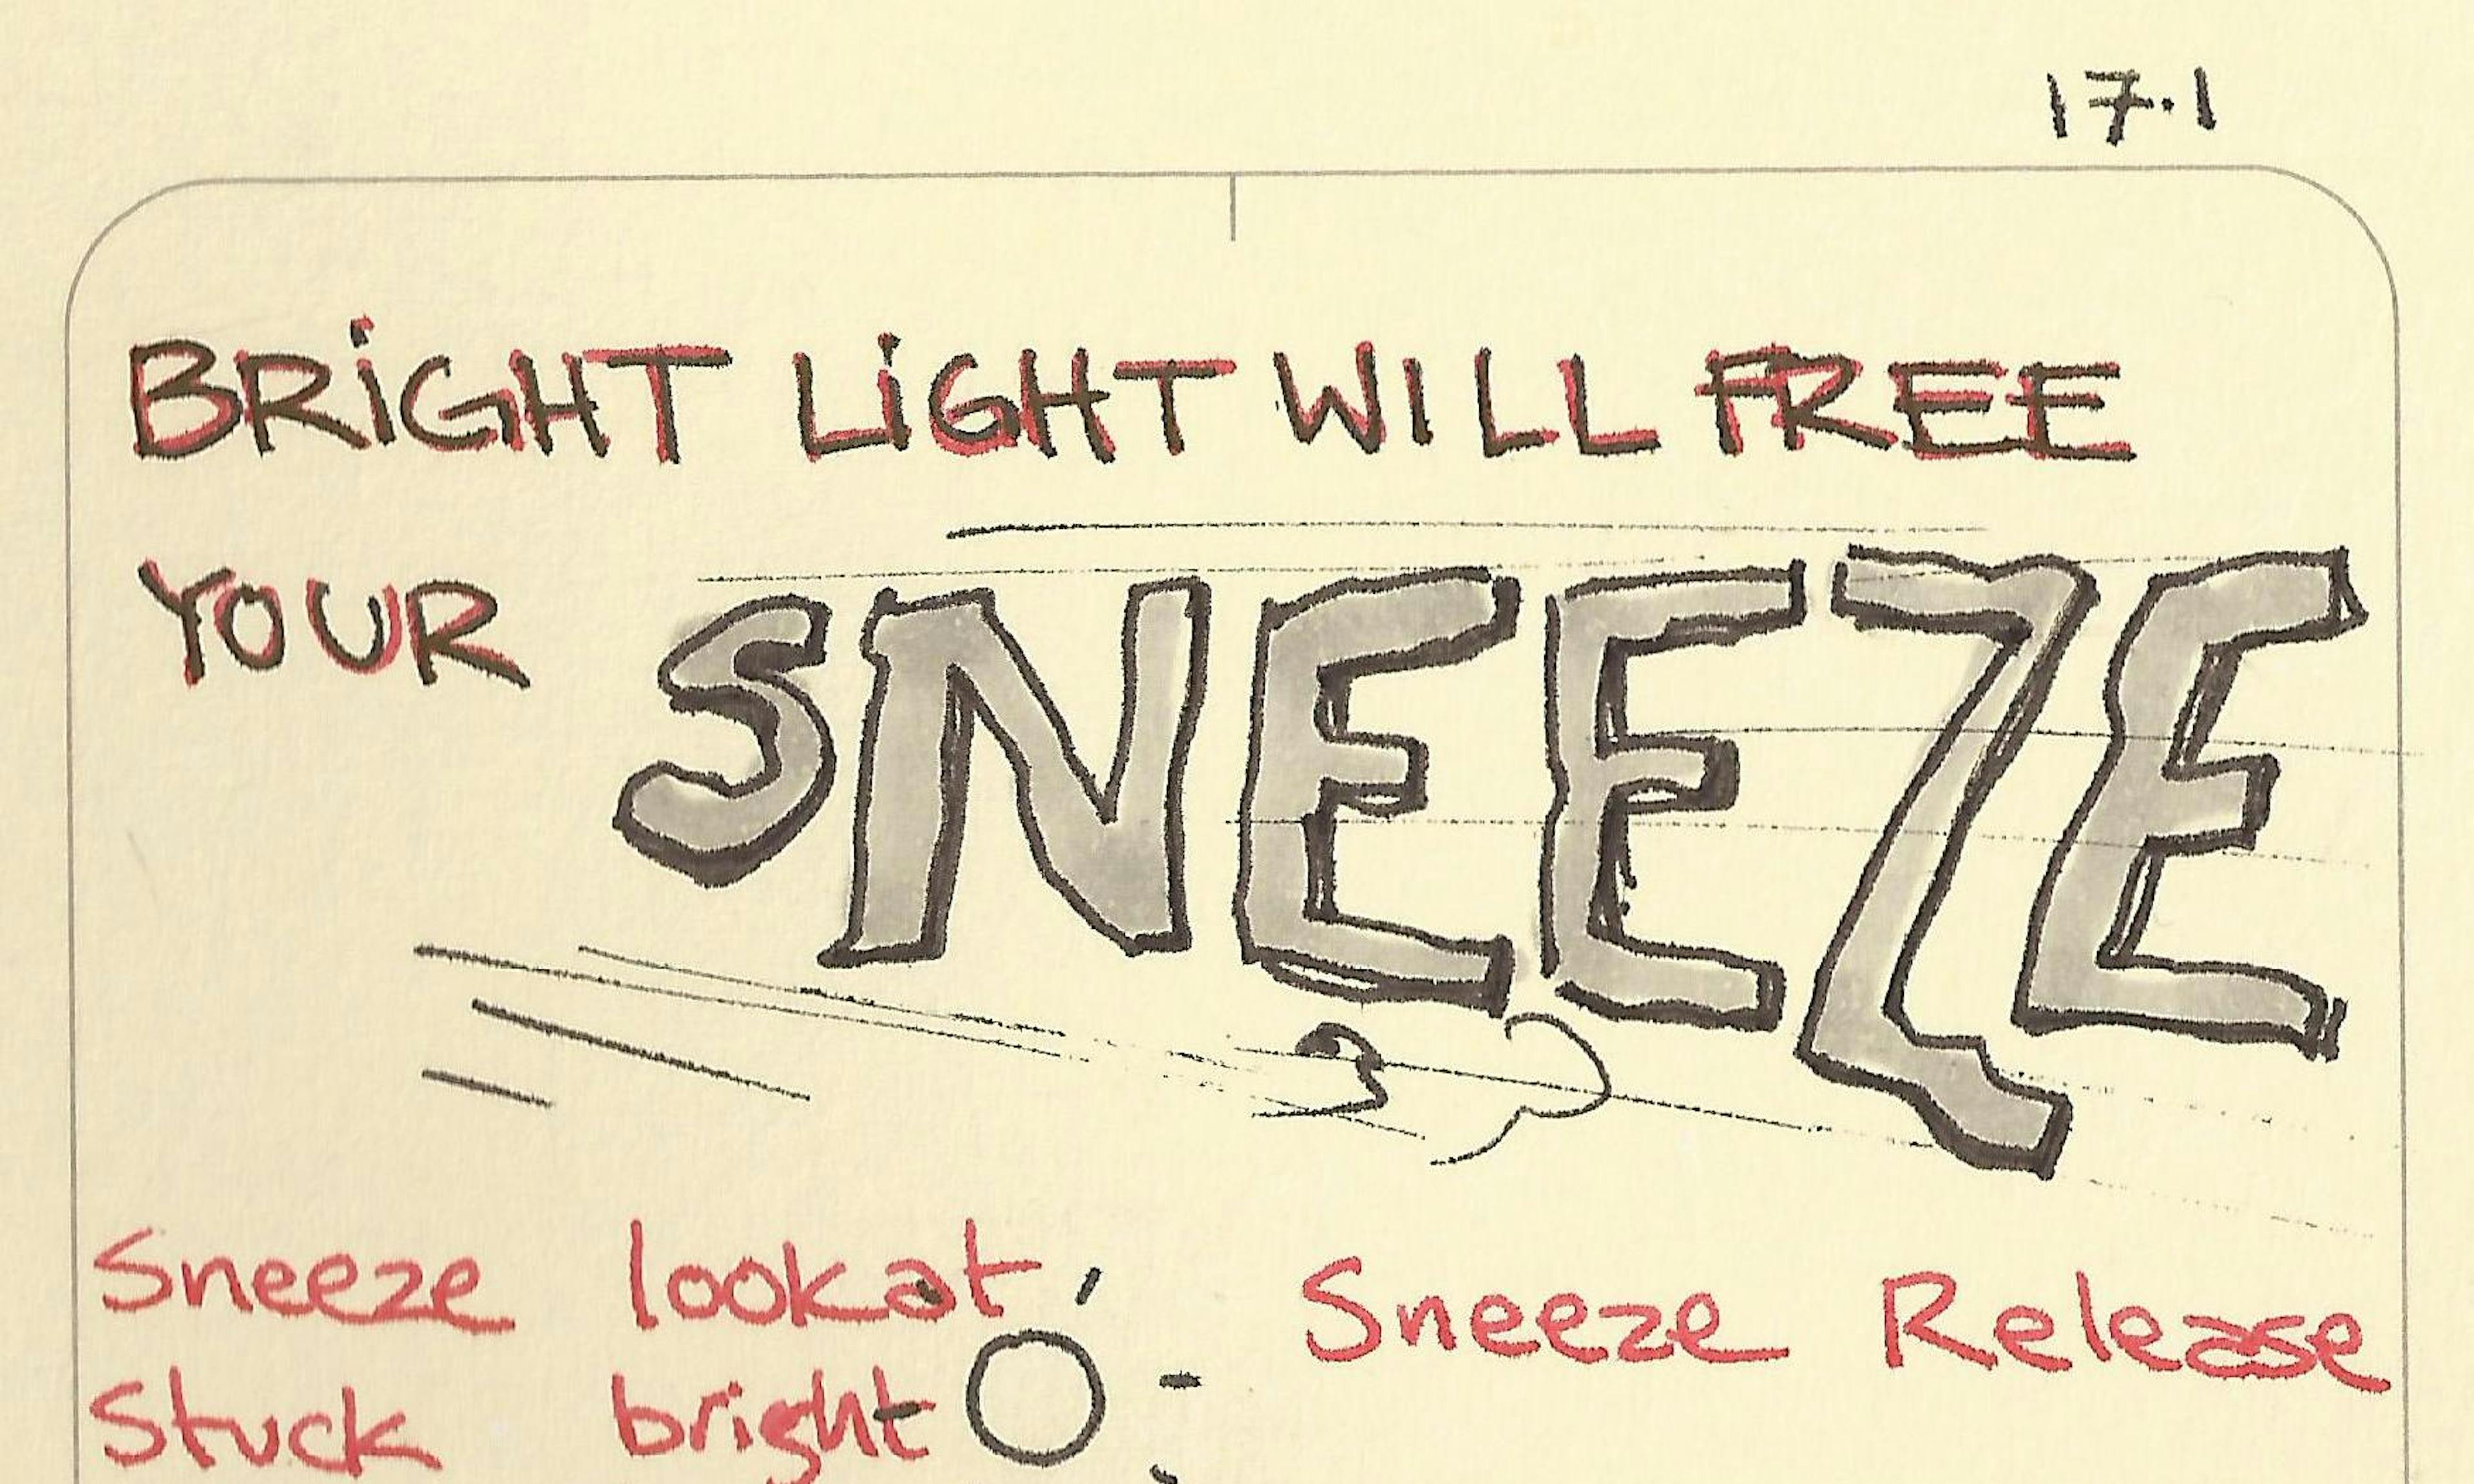 17.1
BRiGHT LiGHT WILL FREE
YOUR SNEEZE
Sneeze look at Sneeze Release
Stuck bright